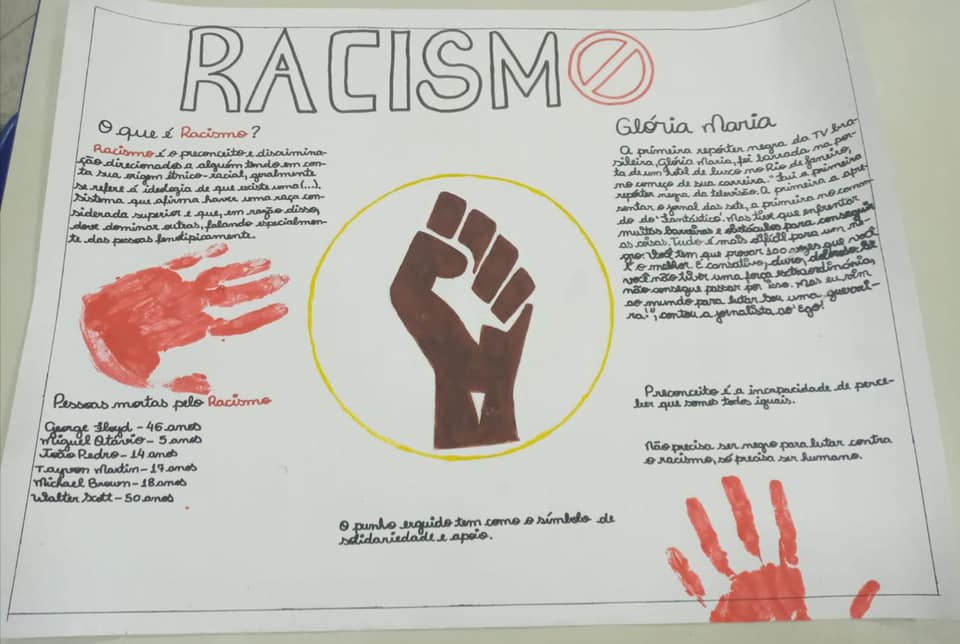 RACISMO
O que é Racismo?
Racismo é o preconceito e discrimina-
ção direcionados a alguém tendo em con-
ta sua origem étnico-racial, geralmente
se refere é ideologia de que existe uma (...),
sistema que afirma haver uma raça con-
siderada superior e que, em razão disso,
deve dominar outras, falando especialmen-
te das pessoas fenotipicamente.
Pessoas mortas pelo Racismo
George Floyd - 46 anos
Miguel Otávio - 5 anos
João Pedro - 14 anos
Tayvon Martin - 17 anos
Michael Brown - 18 anos
Walter Scott - 50 anos
O punho erguido tem como o símbolo de
solidariedade e apoio.
Glória Maria
A primeira repórter negra da TV bra-
sileira, Glória Maria, foi barrada na por-
ta de um hotel de luxo no Rio de Janeiro,
no começo de sua carreira. "Fui a primeira
repórter negra da televisão. A primeira a apre-
sentar o jornal das sete, a primeira no coman-
do do 'Fantástico'. Mas tive que enfrentar
muitas barreiras e obstáculos para conseguir
as coisas. Tudo é mais difícil para um ne-
gro. Você tem que provar 100 vezes que você
é o melhor. É cansativo, duro, doloroso. Se
você não tiver uma força extraordinária,
não consegue passar por isso. Mas eu vim
ao mundo para lutar. Sou uma guerrei-
ra!", contou a jornalista ao 'Ego'.
Preconceito é a incapacidade de perce-
ber que somos todos iguais.
Não precisa ser negro para lutar contra
o racismo, só precisa ser humano.